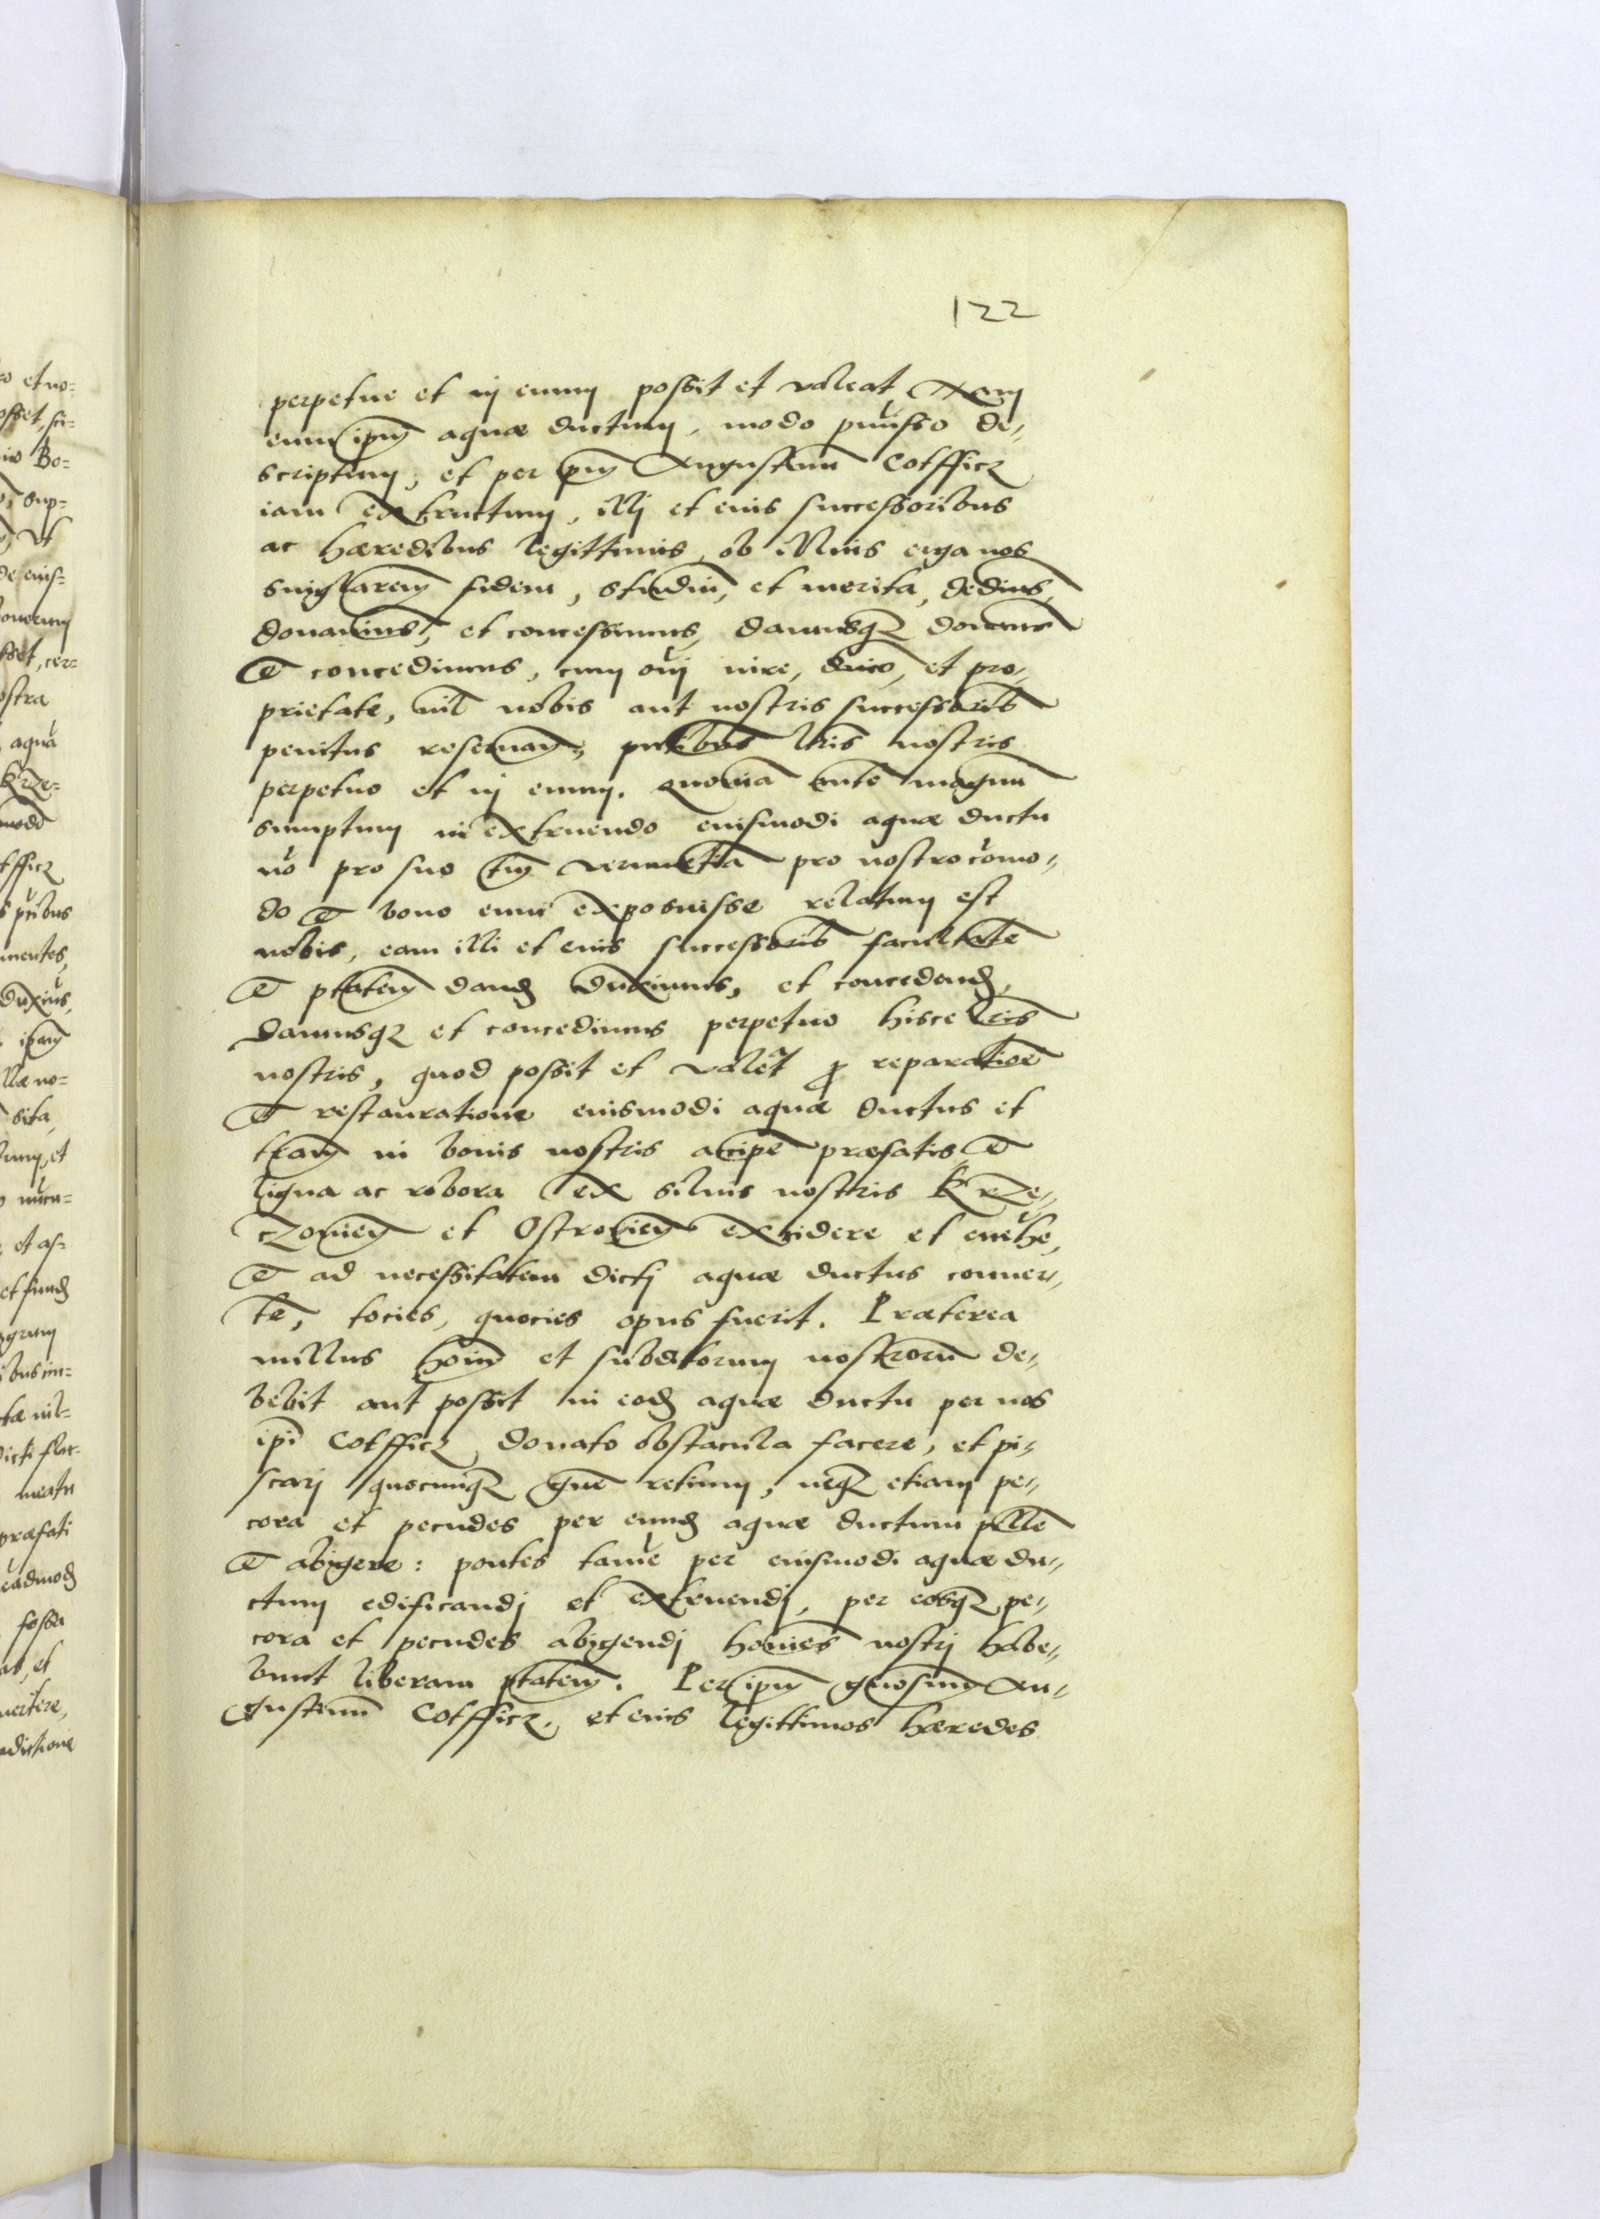 122
perpetue et in euum possit et valeat
eum ipm aquæ ductum, modo pmisso de,,
scriptum, et per ipm Augustinum Cotfficz
iam extructum, illi et eius successoribus
ac hæredibus legittimis, ob illius erga nos
singlarem fidem, studiu, et merita, dedims,
donauims, et concessimus, damusqz donams
et concedimus, cum oi iure, dnio, et pro,,
prietate, nil nobis aut nostris successorib
penitus reseruan, pntibus lris nostris
perpetuo et in euum. Quonia aute magnu
sumptum in extruendo eiusmodi aquæ ductu
no pro suo tm verumetia pro nostro como,,
do et bono eum exposuisse relatum est
nobis, eam illi et eius successorib facultate
et ptatem dand duximus, et concedend,
damusqz et concedimus perpetuo hisce lris
nostris, quod possit et valet p reparatioe
et restauratione eiusmodi aquæ ductus et
tram in bonis nostris accipe præfatis, et
ligna ac robora ex siluis nostris Krze,,
czouien et Ostrouien excidere et euehe,
et ad necessitatem dicti aquæ ductus conuer,,
te, tocies, quocies opus fuerit. Præterea
nullus hoim et subditorum nostroru de,,
bebit aut possit in eod aquæ ductu per nos
ipi Cotfficz donato obstacula facere, et pi,,
scari quocunqz gne retium, neqz etiam pe,,
cora et pecudes per eund aquæ ductum pelle
et abigere: pontes tame per eiusmodi aquæ du,,
ctum edificandi et extruendi, per eosqz pe,,
cora et pecudes abigendi homies nostri habe,,
bunt liberam ptatem. Per ipm gnosum Au,,
gustinu Cotfficz, et eius legittimos hæredes